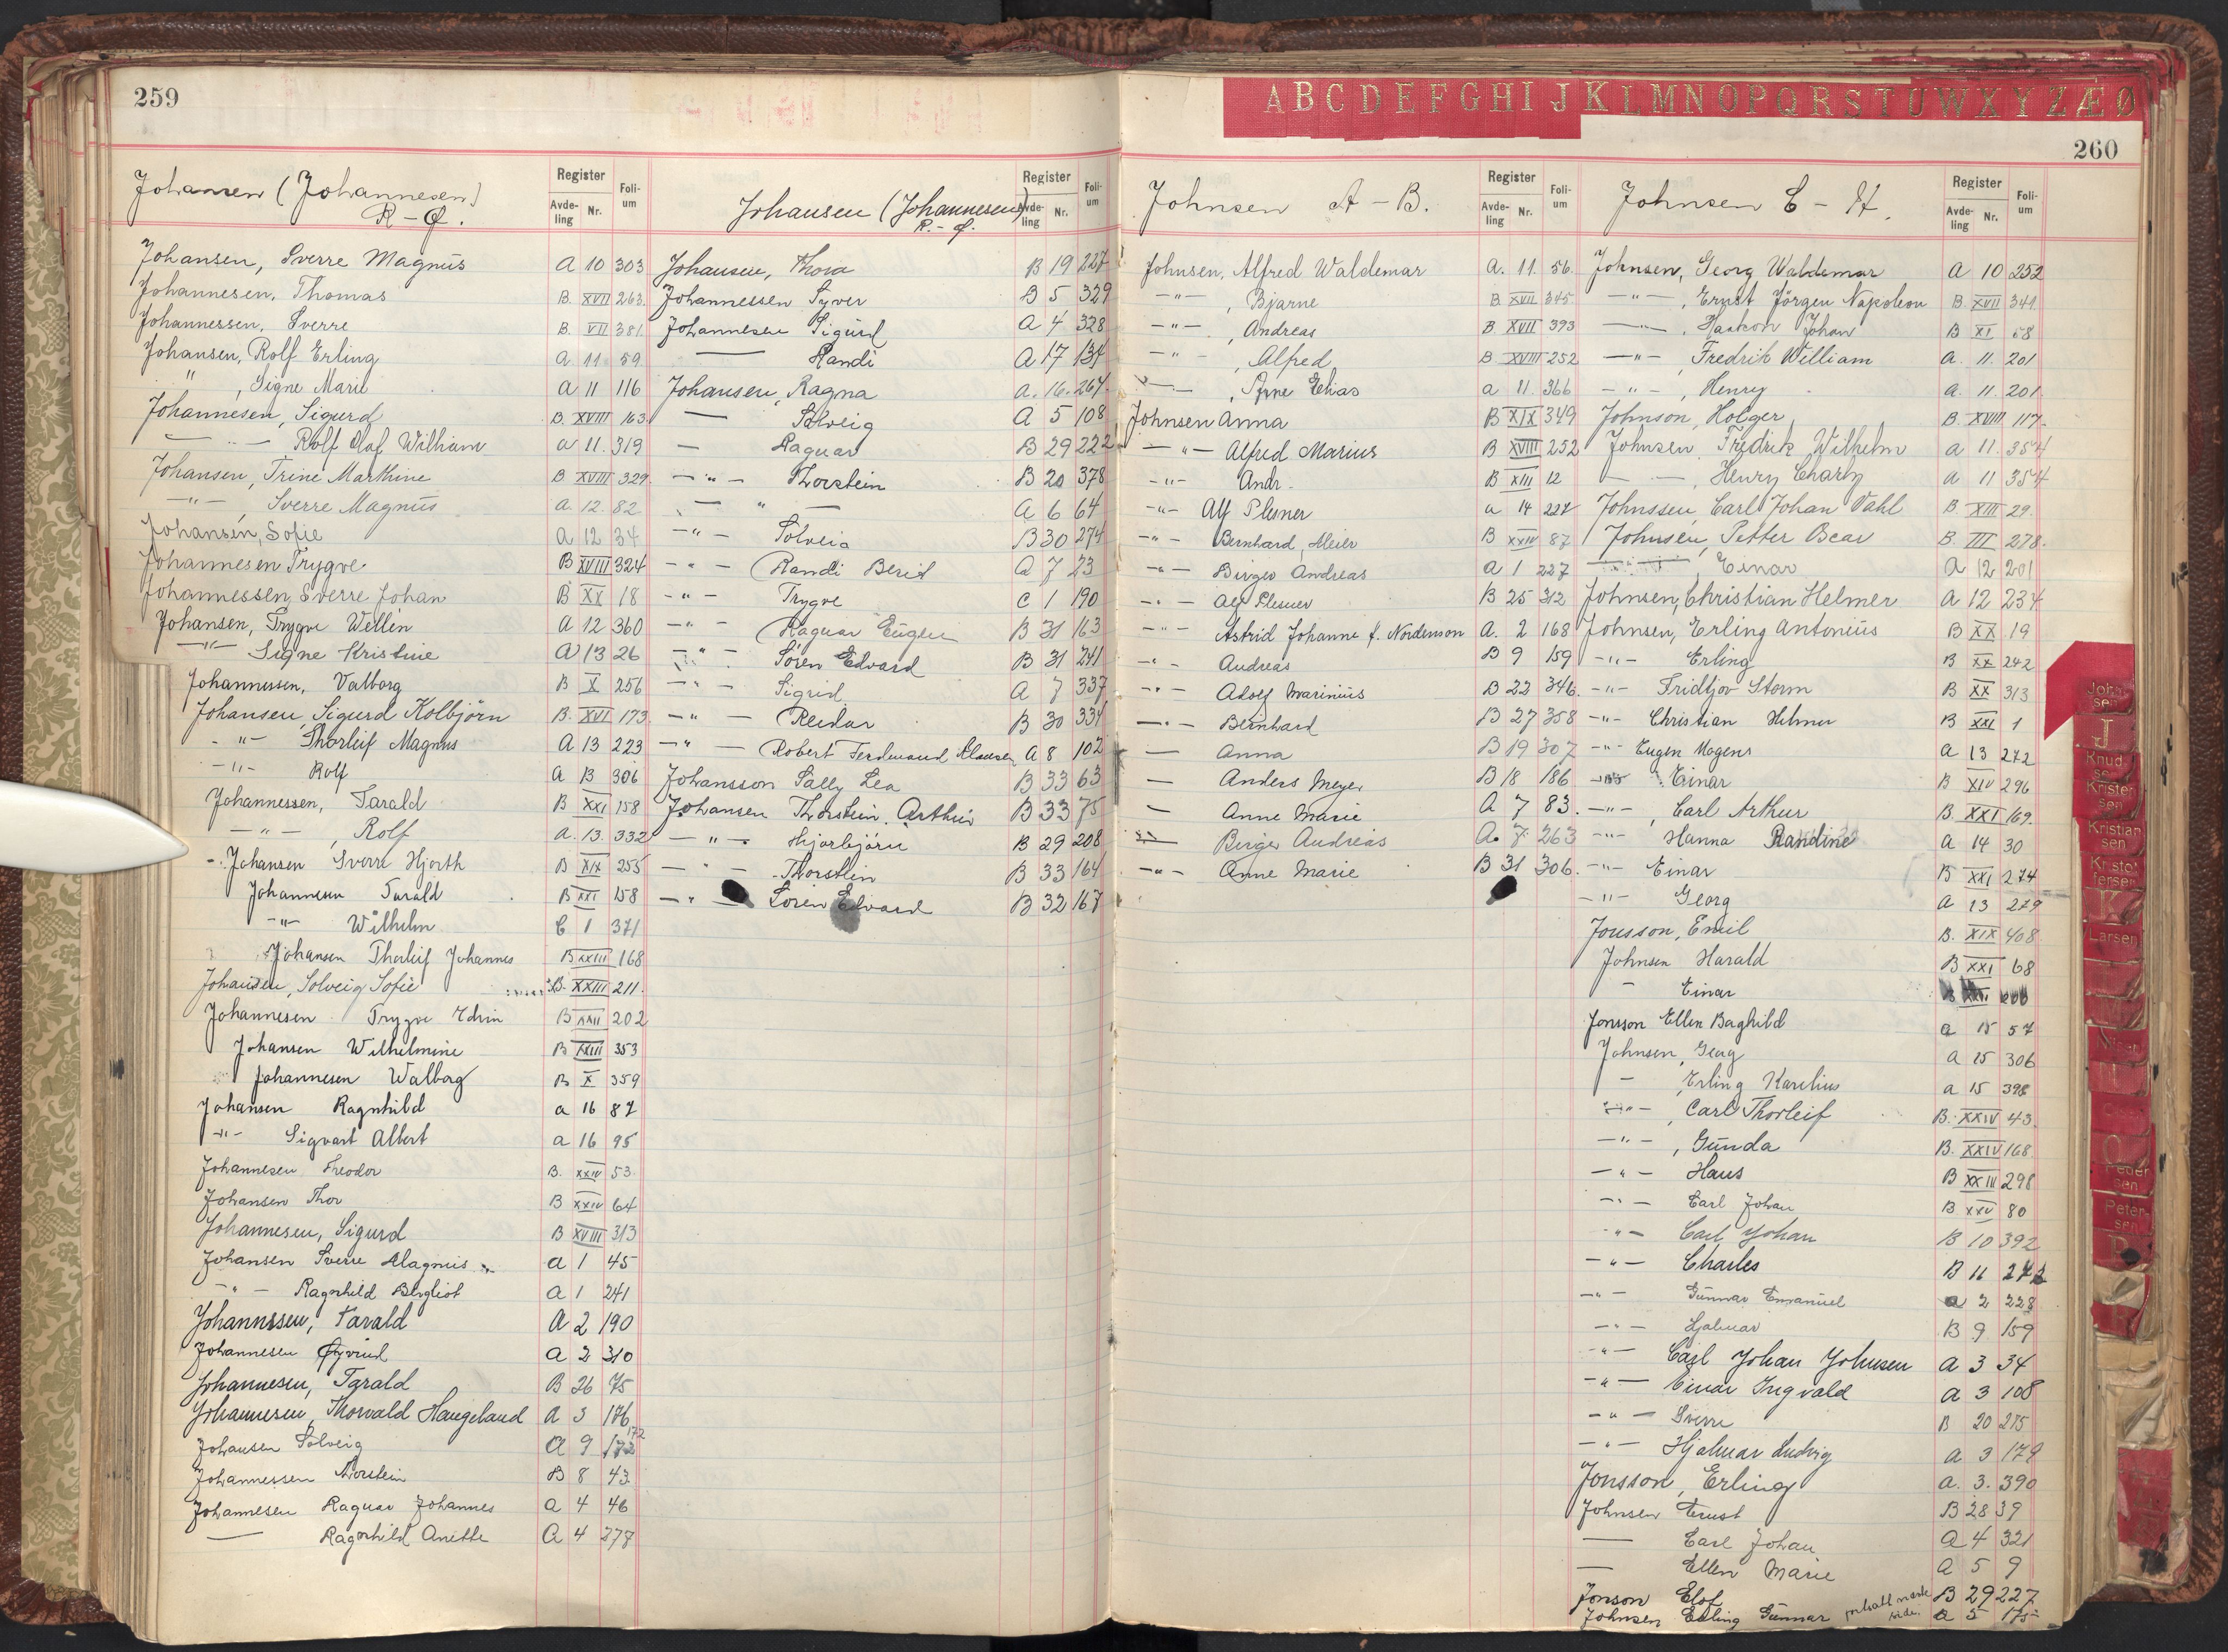 259
Johansen (Johannesen)
R-Ø.
Register
Avde-ling Nr. Folium
Johansen, Sverre Magnus A 10 303
Johannesen, Thomas B. XVII 263.
Johannessen, Sverre B. VII 381.
Johansen, Rolf Erling a 11 59
" , Signe Marie a 11 116
Johannesen, Sigurd B. XVIII 163
— " — Rolf Olaf William a 11. 319
Johansen, Trine Marthine B XVIII 329
— " — , Sverre Magnus a 12. 82
Johansen, Sofie a 12 34
Johannesen Trygve B XVIII 324
Johannessen, Sverre Johan B XX 18
Johansen, Trygve Wellen A 12 360
— " — Signe Kristine A 13 26
Johannessen, Valborg B X 256
Johansen, Sigurd Kolbjörn B. XVI 173
— " — Thorleif Magnus A 13 223
— " — Rolf a 13 306
Johannessen, Tarald B XXI 158
— " — , Rolf a. 13. 332
Johansen Sverre Hjorth B XIX 255
Johannesen Tarald B XXI 158
— " — Wilhelm C 1 371
Johansen Thorleif Johannes B XXIII 168
Johansen, Solveig Sofie B. XXIII 211.
Johannesen Trygve Edvin B XXII 202
Johansen Wilhelmine B XXIII 353
Johannesen Walborg B X 359
Johansen Ragnhild a 16 87
— " — Sigvart Albert a 16 95
Johannesen Theodor B. XXIV 53
Johansen Thor B XXIV 64
Johannesen, Sigurd B XVIII 313
Johansen Sverre Magnus a 1 45
— " — Ragnhild Bergliot a 1 241
Johannessen, Tarald A 2 190
Johannesen Øyvind a 2 310
Johannesen, Tarald B 26 75
Johannesen, Thorvald Haugeland A 3 176
Johansen Solveig A 9 172 172
Johannessen Thorstein B 8 43
Johannesen Ragnar Johannes a 4 46
— Ragnhild Anette a 4 378
Johansen (Johannesen)
R.-Ø.
Register
Avde-ling Nr. Folium
Johansen, Thora B 19 227
Johannessen Syver B 5 329
Johannesen Sigurd A 4 328
— Randi A 17 134
Johansen, Ragna a. 16. 264
— Solveig A 5 108
— Ragnar B 29 222
— " — Thorstein B 20 378
— " — A 6 64
— " — Solveig B 30 274
— " — Randi Berit A 7 23
— " — Trygve C 1 190
— " — Ragnar Eugen B 31 163
— " — Sören Edvard B 31 241
— " — Sigrid A 7 337
— " — Reidar B 30 334
— " — Robert Ferdinand Klausen A 8 102
Johansson Sally Lea B 33 63
Johansen Thorstein Arthur B 33 75
— " — Hjørbjörn B 29 208
— " — Thorstein B 33 164
— " — Sören Edvard B 32 167
A B C D E F G H I J K L M N O P Q R S T U W X Y Z Æ Ø
260
Johnsen A-B.
Register
Avde-ling Nr. Folium
Johnsen, Alfred Waldemar A. 11. 56.
— " — , Bjarne B XVII 345
— " — , Andreas B. XVII 393
— " — , Alfred B XVIII 252
— " — , Arne Elias a 11. 366
Johnsen Anna B XIX 349
— " — Alfred Marius B XVIII 252
— " — Andr. B XIII 12
— " — Alf Plesner a 14 227
— " — Bernhard Meier B XXIV 87
— " — Birger Andreas a 1 227
— " — Alf Plesner B 25 312
— " — Astrid Johanne f. Nordenson A. 2 168
— " — Andreas B 9 159
— " — Adolf Marinius B 22 346.
— " — Bernhard B 27 358
— Anna B 19 307
— Anders Meyer B 18 186
— Anne Marie A 7 83.
— " — Birger Andreas A. 7 263
— " — Anne Marie B 31 306.
Johnsen C-H.
Register
Avde-ling Nr. Folium
Johnsen, Georg Waldemar A 10 252
— " — , Ernst Jörgen Napoleon B XVII 341
— " — , Haakon Johan B XI 68
— " — , Fredrik William a. 11. 201
— " — , Henry a. 11. 201
Johnson, Holger B. XVIII 117.
Johnsen, Fredrik Wilhelm a 11. 354
— " — , Henry Charly a 11 354
Johnssen, Carl Johan Vahl B XIII 29.
Johnsen, Petter Bear B III 278.
— " — , Einar A 12 201
Johnsen, Christian Helmer A 12 234
Johnsen, Erling Antonius B XX 19
— " — Erling B XX 242
— " — Fridtjov Storm B XX 313
— " — Christian Helmer B XXI 1
— " — Eugen Mogens a 13 272
— " — Einar B XIV 296
— " — , Carl Arthur B. XXI 169.
— " — Hanna Randine a 14 30
— " — Einar B XXI 274
— " — Georg a 13 279
Jonsson, Emil B. XIX 408
Johnsen Harald B XXI 68
— Einar
Jonsson Ellen Raghild a 15 57
Johnsen, Georg a 15 306
— , Erling Karelius a 15 398
— " — , Carl Thorleif B. XXIV 43.
— " — , Gunda B. XXIV 168
— " — Hans B XXIV 298
— " — Carl Johan B XXV 80
— " — Carl Johan B 10 392
— " — Charles B 11 272
— " — Gunnar Emanuel a 2 228
— " — Hjalmar B 9 159
— " — Carl Johan Johnsen A 3 34
— " — Einar Ingvald a 3 108
— " — Sverre B 20 275
— " — Hjalmar Ludvig a 3 179
Jonsson, Erling a. 3. 390
Johnsen Ernst B 28 39
— Carl Johan a 4 321
— Ellen Marie a 5 9
Jonson Elof B 29 227
Johnsen Erling Gunnar forts. næste side a 5 175
Johnsen
J
Knudsen
Kristensen
Kristiansen
Kristoffersen
K
Larsen
Pedersen
Petersen